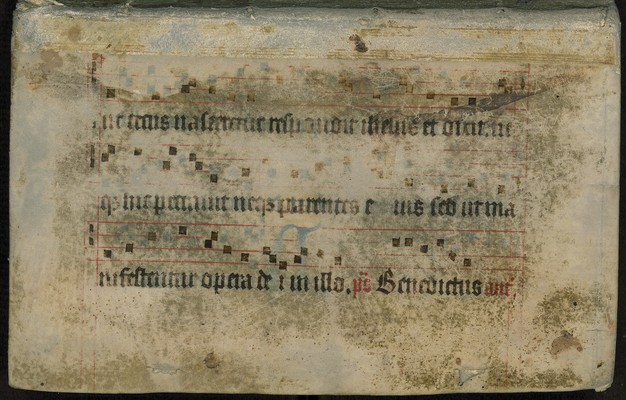 ut cecus nasceretur respondit ihesus et dixit n
q3 hic peccauit neq3 parentes e ius sed ut ma
nifestentur opera de i in illo. ps Benedictus ant